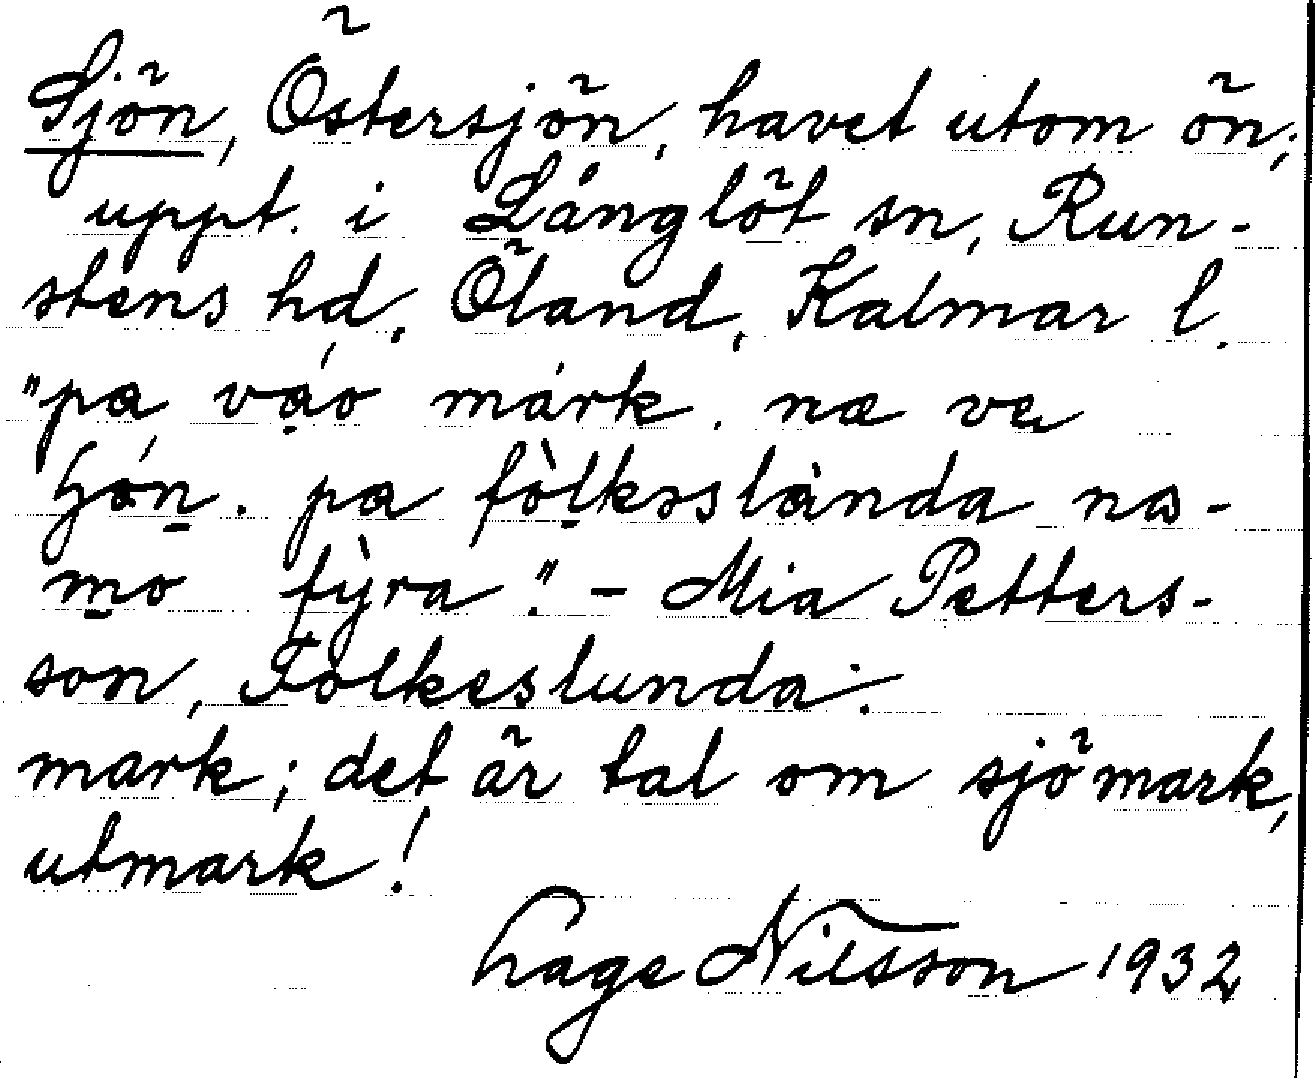 Sjön, Östersjön, havet utom ön;
uppt. i Långlöt sn, Run-
stens hd, Öland, Kalmar l.
"pa váo márk. næ ve
hón. pa fòlksslànda na-
mo fỳra". - Mia Petters-
son, Folkeslunda.
mark; det är tal om sjömark,
utmark!
Hage Nilsson 1932